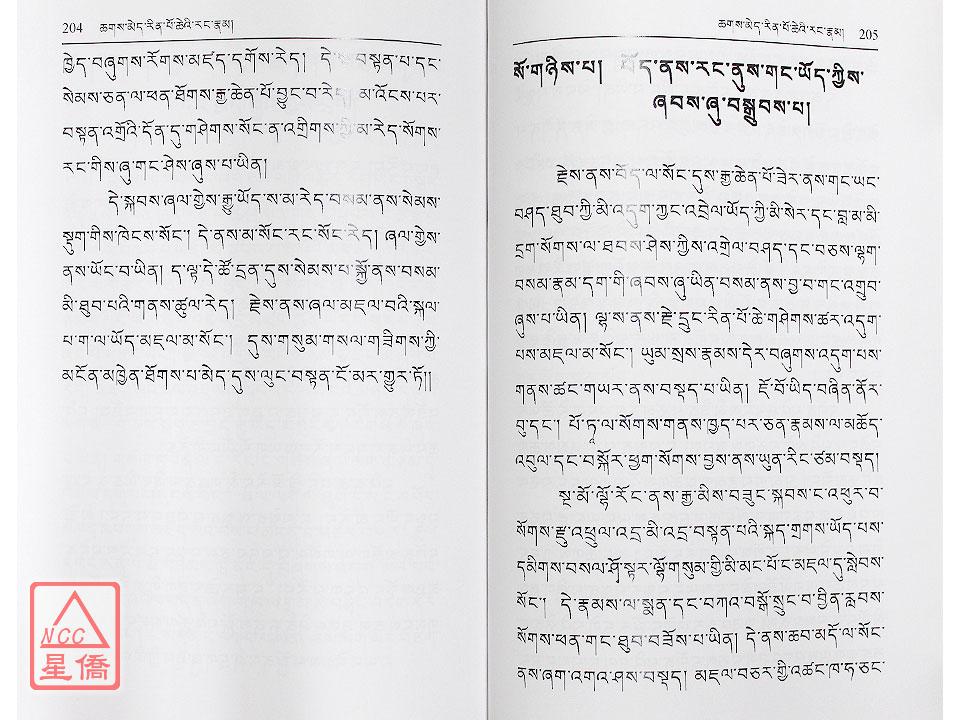 204 ཆགས་མེད་རིན་པོ་ཆེའི་རང་རྣམ།
ཁྱེད་བཞུགས་རོགས་མཛད་དགོས་རེད། དེ་ བསྟན་པ་དང་
སེམས་ཅན་ལ་ཕན་ཐོགས་རྒྱ་ཆེན་པོ་བྱུང་བ་རེད། མ་འོངས་པར་
བསྟན་འགྲོའི་དོན་དུ་གཤེགས་སོང་ན་འགྲིགས་ཀྱི་མ་རེད་སོགས་
རང་གིས་ཞུ་གང་ཤེས་ཞུས་པ་ཡིན།
དེ་སྐབས་ཞལ་གྱེས་རྒྱུ་ཡོད་ས་མ་རེད་བསམ་ནས་སེམས་
སྡུག་གིས་ཁེངས་སོང་། དེ་ནས་མ་སོང་རང་སོང་རེད། ཞལ་གྱེས་
ནས་ཡོང་བ་ཡིན། ད་ལྟ་དེ་ཚོ་དྲན་དུས་སེམས་པ་སྐྱོ་ནས་བསམ་
མི་ཐུབ་པའི་གནས་ཚུལ་རེད། རྗེས་ནས་ཞལ་མཇལ་བའི་སྐལ་
པ་ག་ལ་ཡོད་མཇལ་མ་སོང་། དུས་གསུམ་གསལ་གཟིགས་ཀྱི་
མངོན་མཁྱེན་ཐོགས་པ་མེད་དུས་ལུང་བསྟན་ངོ་མར་གྱུར་ཏོ།།
ཆགས་མེད་རིན་པོ་ཆེའི་རང་རྣམ། 205
སོ་གཉིས་པ། བོད་ནས་རང་ནུས་གང་ཡོད་ཀྱིས་
ཞབས་ཞུ་བསྒྲུབས་པ།
རྗེས་ནས་བོད་ལ་སོང་དུས་རྒྱ་ཆེན་པོ་ཟེར་ནས་གང་ཡང་
བཤད་ཐུབ་ཀྱི་མི་འདུག་ཀྱང་འབྲེལ་ཡོད་ཀྱི་མི་སེར་དང་བླ་མ་མི་
དྲག་སོགས་ལ་ཐབས་ཤེས་ཀྱིས་འགྲེལ་བཤད་དང་བཅས་ལྷག་
བསམ་རྣམ་དག་གི་ཞབས་ཞུ་ཡིན་བསམ་ནས་བྱ་བ་གང་འགྲུབ་
ཞུས་པ་ཡིན། ལྷ་ས་ནས་རྗེ་དྲུང་རིན་པོ་ཆེ་གཤེགས་ཚར་འདུག་
པས་མཇལ་མ་སོང་། ཡུམ་སྲས་རྣམས་དེར་བཞུགས་འདུག་པས་
གནས་ཚང་གཡར་ནས་བསྡད་པ་ཡིན། ཇོ་བོ་ཡིད་བཞིན་ནོར་
བུ་དང་། པོ་ཏཱ་ལ་སོགས་གནས་ཁྱད་པར་ཅན་རྣམས་ལ་མཆོད་
འབུལ་དང་བསྐོར་ཕྱག་སོགས་བྱས་ནས་ཡུན་རིང་ཙམ་བསྡད།
སྔ་མོ་ལྷོ་རོང་ནས་རྒྱ་མིས་བཟུང་སྐབས་ང་འཕུར་བ་
སོགས་རྫུ་འཕྲུལ་འདྲ་མི་འདྲ་བསྟན་པའི་སྐད་གྲགས་ཡོད་པས་
དམིགས་བསལ་ཤོ་སྟར་ལྷོ་གསུམ་གྱི་མི་མང་པོ་ང་མཇལ་དུ་སླེབས་
སོང་། དེ་རྣམས་ལ་སྨན་དང་བཀའ་བསྒོ་སྲུང་བ་བྱིན་རླབས་
སོགས་ཕན་གང་ཐུབ་བཟོས་པ་ཡིན། དེ་ནས་ཆབ་མདོ་ལ་སོང་
ནས་ཞག་འགའ་ཤས་བསྡད། མཇལ་བཅར་གྱི་འཚང་ཁ་ཧ་ཅང་
NCC
星僑